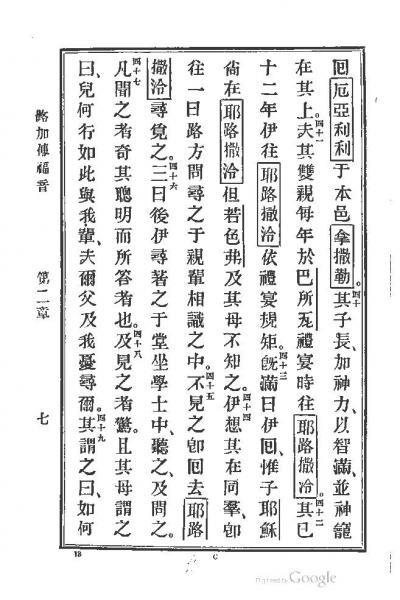 囘厄亞利利于本邑拿撒勒。四十其子長、加神力、以智滿、並神寵
在其上。四一夫其雙親每年於巴所𠀍禮宴時往耶路撒冷。四二其已
十二年伊往耶路撒冷依禮宴規矩。四三旣滿日伊囘、惟子耶穌
尙在耶路撒冷但若色弗及其母不知之。四四伊想其在同羣、卽
往一日路方問尋之于親輩相識之中。四五不見之卽囘去耶路
撒冷尋覓之。四六三日後伊尋著之于堂坐學士中、聽之、及問之。
四七凡聞之者奇其聰明而所答者也。四八及見之者驚。且其母謂之
曰、兒何行如此與我輩、夫爾父及我憂尋爾。四九其謂之曰、如何
路加傳福音 第二章 七
18 C
Digitized by Google